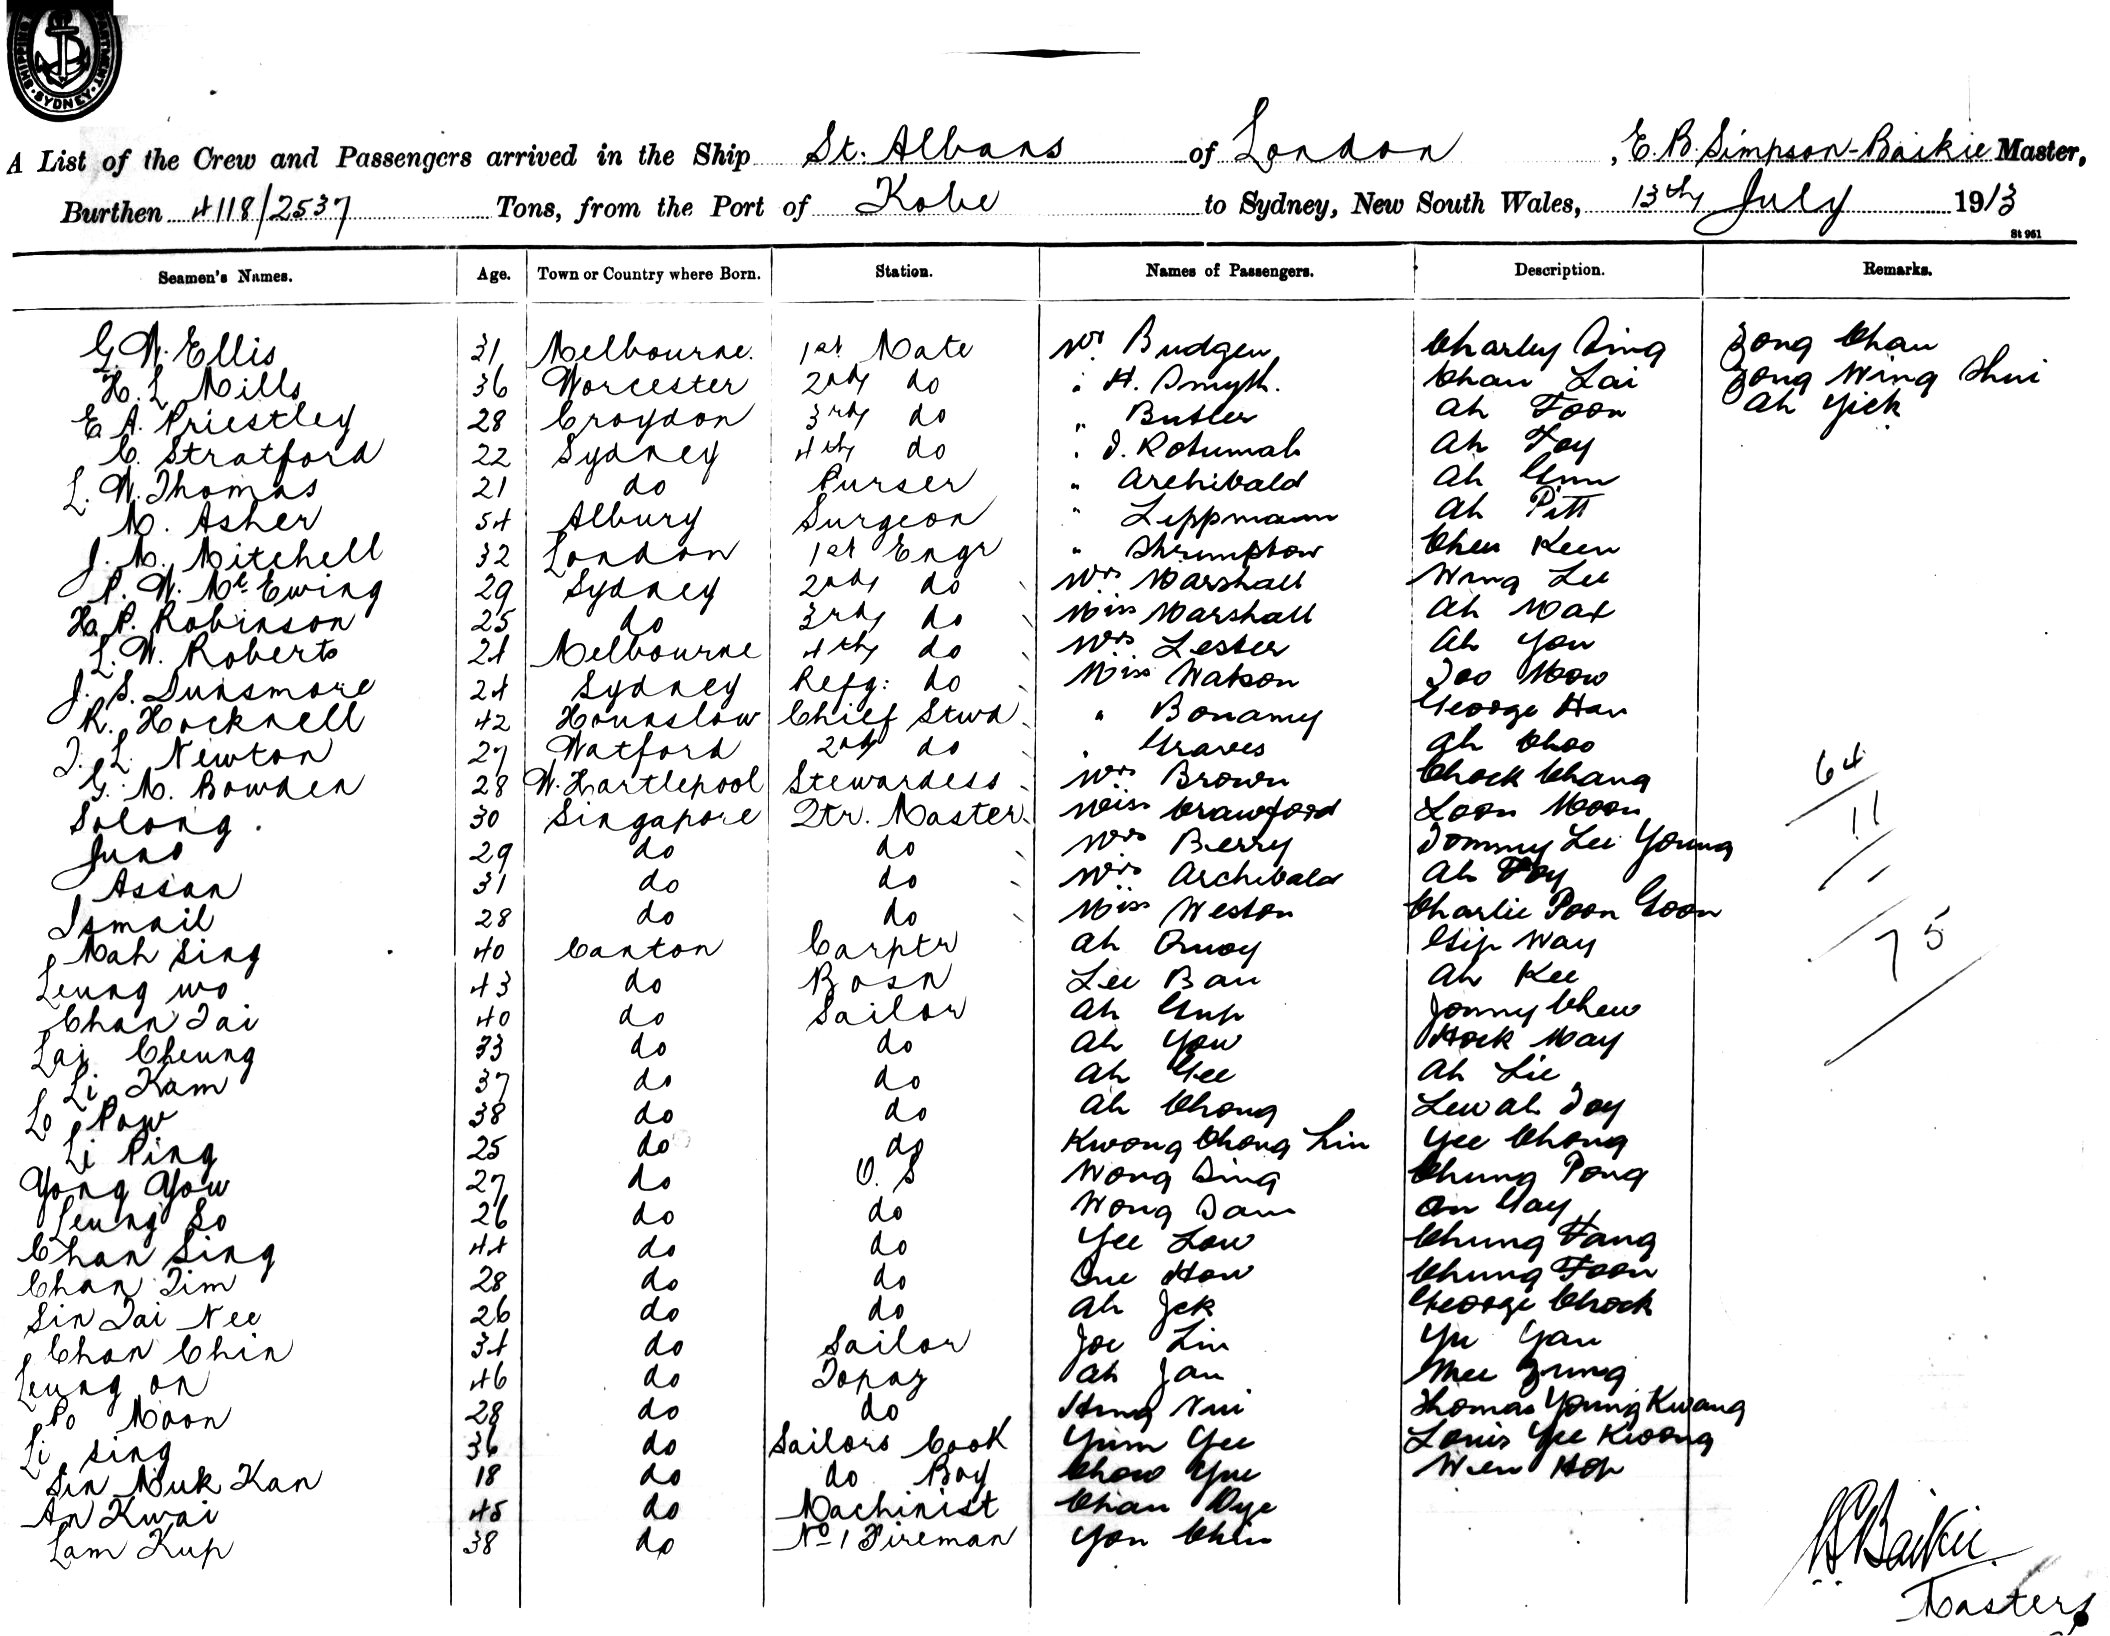 SHIPPING DEPARTMENT · SYDNEY ·
A List of the Crew and Passengers arrived in the Ship St. Albans of London, E. B. Simpson-Baikie Master,
Burthen 4118/2537 Tons, from the Port of Kobe to Sydney, New South Wales, 13th July 1913
St 961
Seamen's Names. Age. Town or Country where Born. Station. Names of Passengers. Description. Remarks.
G. W. Ellis 31 Melbourne. 1st Mate Mr Budgen Charley Sing Zong Chan
H. L Mills 36 Worcester 2nd do " H. Smyth. Chan Lai Zong Wing Shui
E. A. Priestley 28 Croydon 3rd do " Butler Ah Foon Ah Yick
C. Stratford 22 Sydney 4th do " J. Rotumah Ah Foy
L. W. Thomas 21 do Purser " Archibald Ah Gun
M. Asher 54 Albury Surgeon " Lippmann Ah Pitt
J. M. Mitchell 32 London 1st Engr " Shrimpton Chen Keen
P. W. McEwing 29 Sydney 2nd do Mrs Marshall Wing Lee
H. P. Robinson 25 do 3rd do Miss Marshall Ah Mat
L. W. Roberts 24 Melbourne 4th do Mrs Lester Ah You
J. S. Dunsmore 24 Sydney Refg: do Miss Watson Joo Mow
R. Hocknell 42 Hounslow Chief Stwd " Bonamy George Han
J. L. Newton 27 Watford 2nd do " Graves Ah Choo
G. M. Bowden 28 W. Hartlepool Stewardess Mrs Brown Chock Chang
Solong. 30 Singapore Qtr. Master Miss Crawford Loon Moon
Juno 29 do do Mrs Berry Tommy Lee Young
Assan 31 do do Mrs Archibald Ah Foy
Ismail 28 do do Miss Weston Charlie Poon Goon
Mah Sing 40 Canton Carptr Ah Quoy Gip Way
Leung wo 43 do Bosn Lee Ban Ah Kee
Chan Tai 40 do Sailor Ah Gup Jonny Chew
Lai Cheung 33 do do Ah You Hock May
Li Kam 37 do do Ah Gee Ah Lie
Lo Pow 38 do do Ah Chong Lewah Toy
Li Ping 25 do do Kwong Chong Lin Yee Chong
Yong Yow 27 do O. S Wong Sing Chung Pong
Leung So 26 do do Wong Sam On Gay
Chan Sing 44 do do Yee Low Chung Fang
Chan Tim 28 do do Que How Chung Foon
Sin Tai Nee 26 do do Ah Jek George Chock
Chan Chin 34 do Sailor Joe Lin Yu Yan
Leung on 46 do Topaz Ah Jan Mee Zung
Po Moon 28 do do Hing Nui Thomas Young Kwang
Li sing 36 do Sailors Cook Yum Yee Louis Yee Kwong
Sin Muk Kan 18 do do Boy Chow Yue Wen Hop
An Kwai 45 do Machinist Chan Dye
Lam Kup 38 do No 1 Fireman Yon Chin
64
11
75
Baikie.
Master